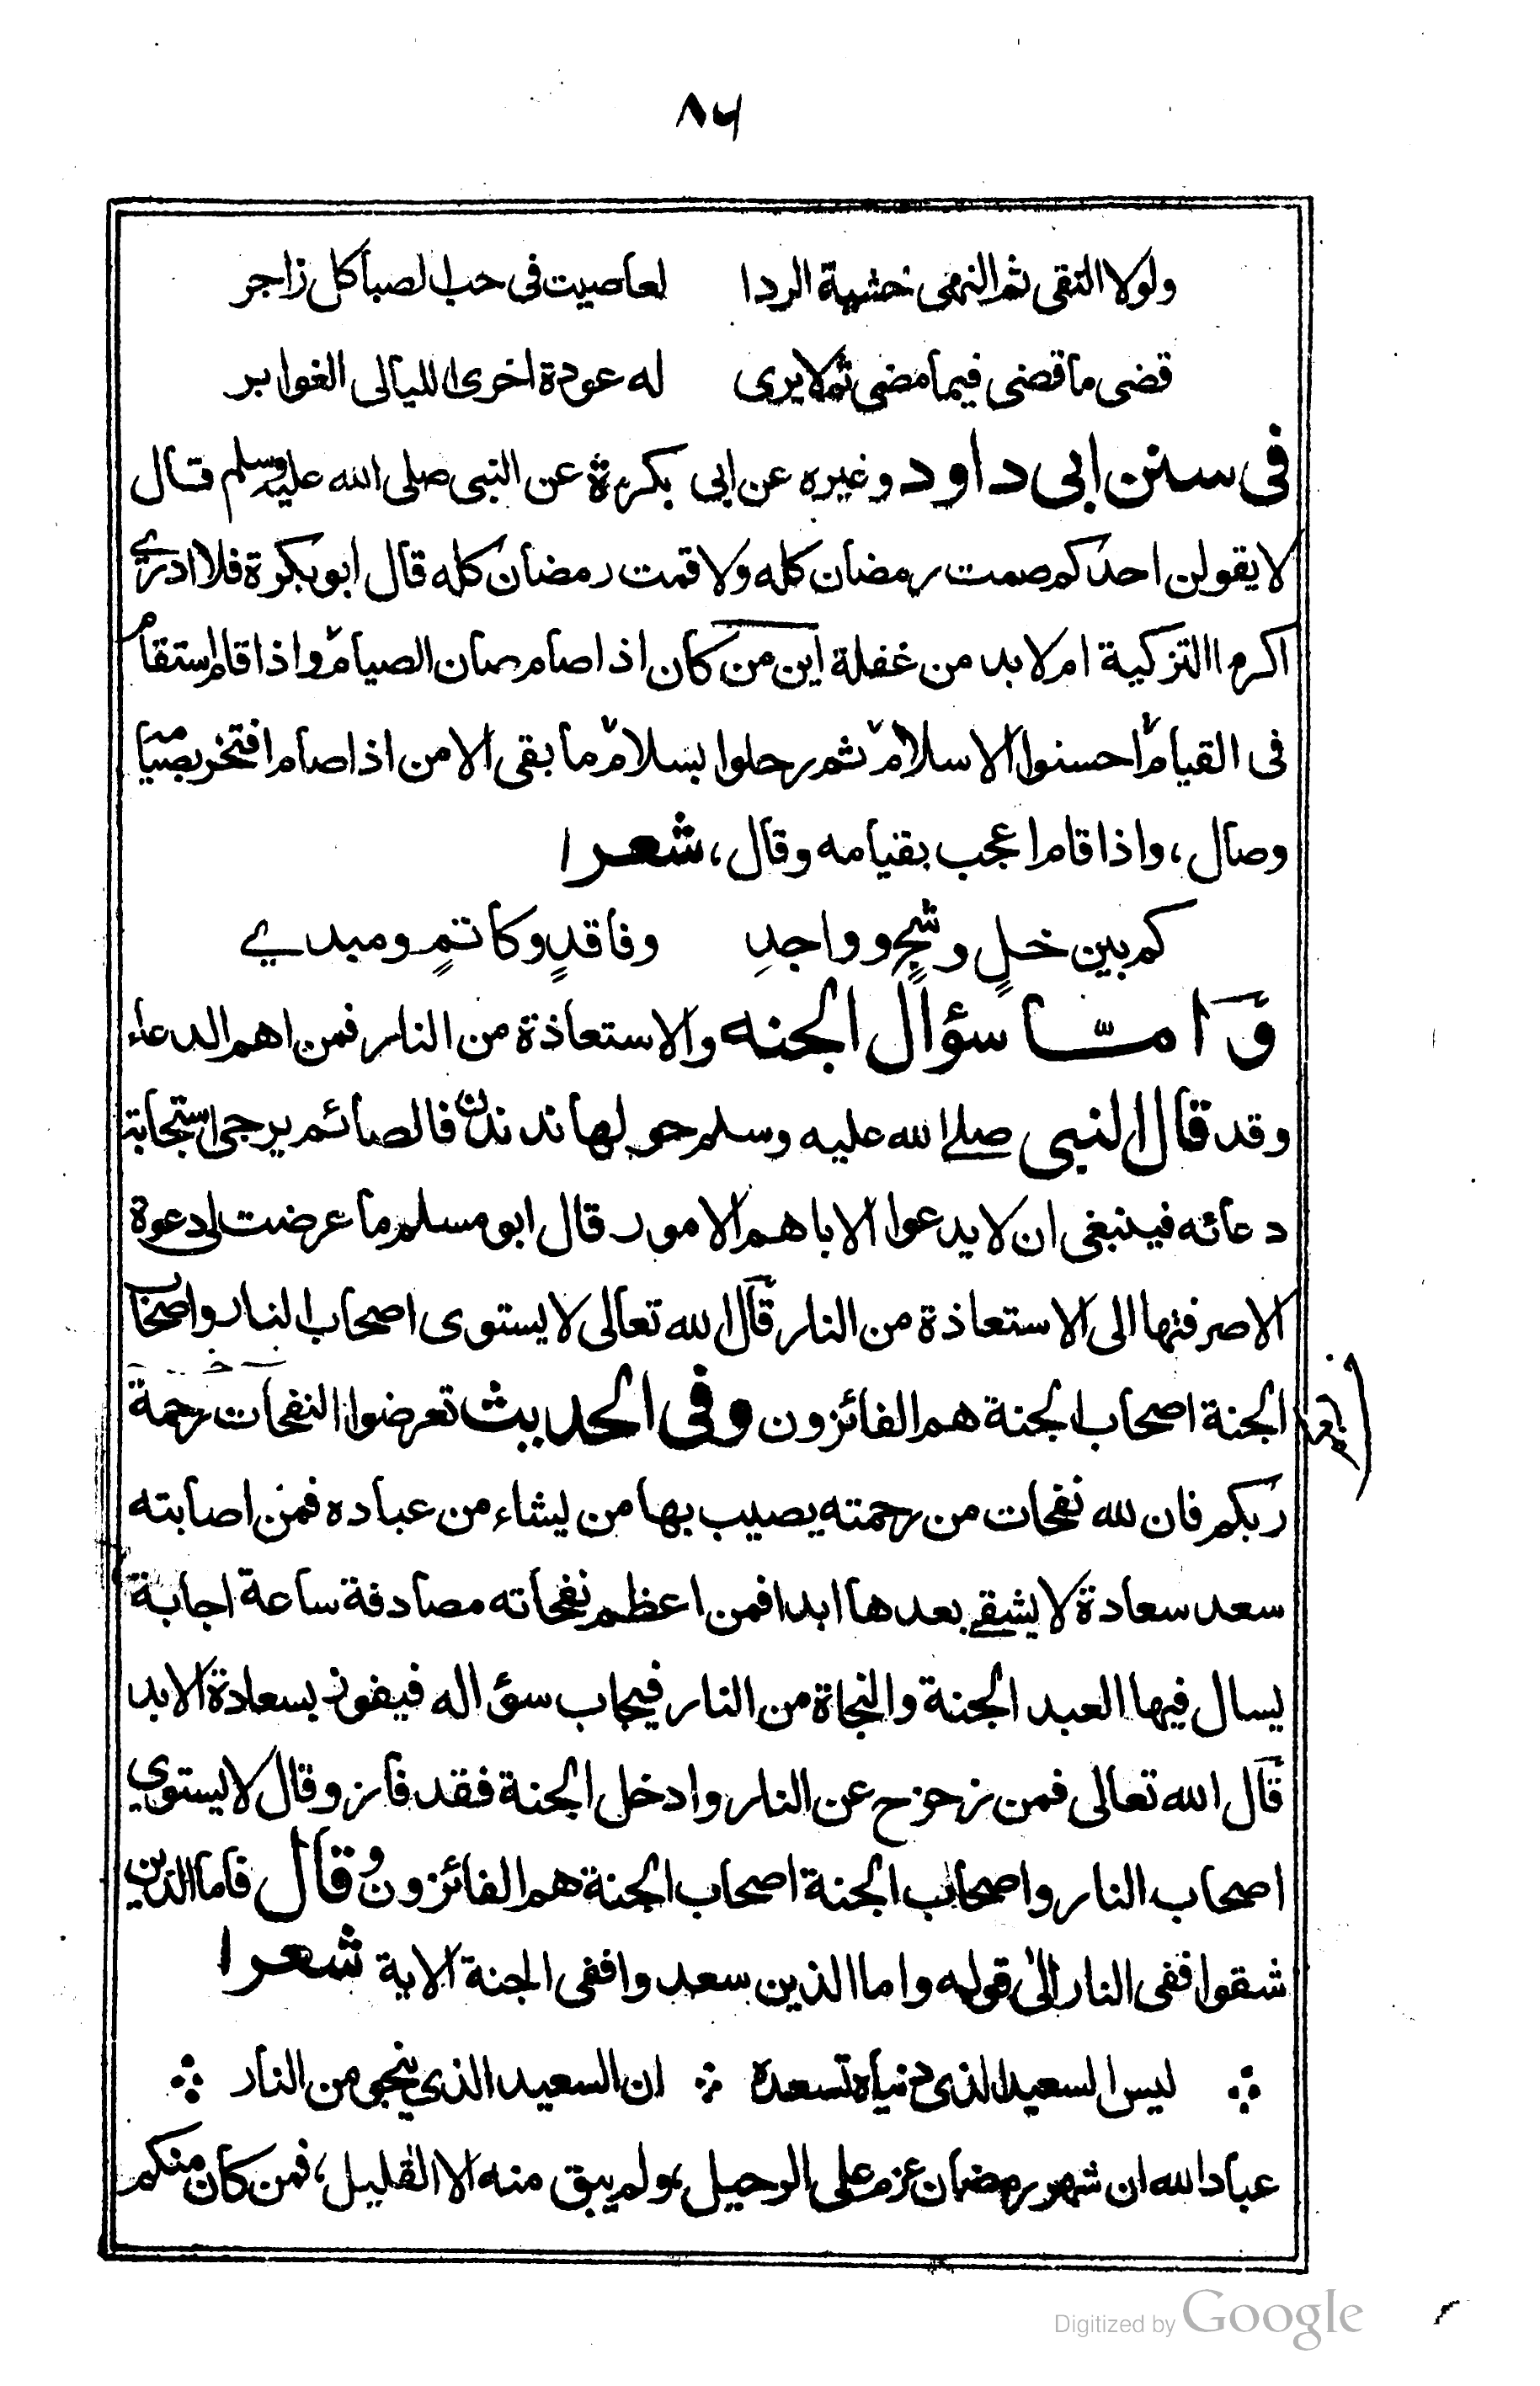 ٨٦
ولولا التقى ثم النهى خشية الردا لعاصيت فى حب الصبا كل زاجر
قضى ما قضى فيما مضى ثم لا يرى له عودة اخرى الليالى الغوابر
فى سنن ابى داود وغيره عن ابى بكرة عن النبى صلى الله عليه وسلم قال
لا يقولن احدكم صمت رمضان كله ولا قمت رمضان كله قال ابو بكرة فلا ادرى
اكره التزكية ام لا بد من غفلة اين من كان اذا صام صان الصيام واذا قام استقام
فى القيام احسنوا الاسلام ثم رحلوا بسلام ما بقى الا من اذا صام افتخر بصيامه
وصال، واذا قام اعجب بقيامه وقال، شعرا
كم بين خلٍ وشجٍ وواجدِ وفاقدٍ وكاتمٍ ومبدي
وَامّا سؤال الجنه والاستعاذة من النار فمن اهم الدعاء
وقد قال النبى صلى الله عليه وسلم حولها ندندن فالصائم يرجى استجابة
دعائه فينبغى ان لا يدعوا الا باهم الامور قال ابو مسلم ما عرضت لى دعوة
الا صرفتها الى الاستعاذة من النار قال الله تعالى لا يستوى اصحاب النار واصحاب
الجنة اصحاب الجنة هم الفائزون وفى الحديث تعرضوا النفحات رحمة
ربكم فان لله نفحات من رحمته يصيب بها من يشاء من عباده فمن اصابته
سعد سعادة لا يشقى بعدها ابدا فمن اعظم نفحاته مصادفة ساعة اجابة
يسال فيها العبد الجنة والنجاة من النار فيجاب سؤاله فيفوز بسعادة الابد
قال الله تعالى فمن زحزح عن النار وادخل الجنة فقد فاز وقال لا يستوي
اصحاب النار واصحاب الجنة اصحاب الجنة هم الفائزون وقال فاما الذين
شقوا ففى النار الى قوله واما الذين سعدوا ففى الجنة الاية شعرا
ليس السعيد الذى دنياه تسعده ان السعيد الذي ينجو من النار
عباد الله ان شهر رمضان عزم على الرحيل، ولم يبق منه الا القليل، فمن كان منكم
Digitized by Google